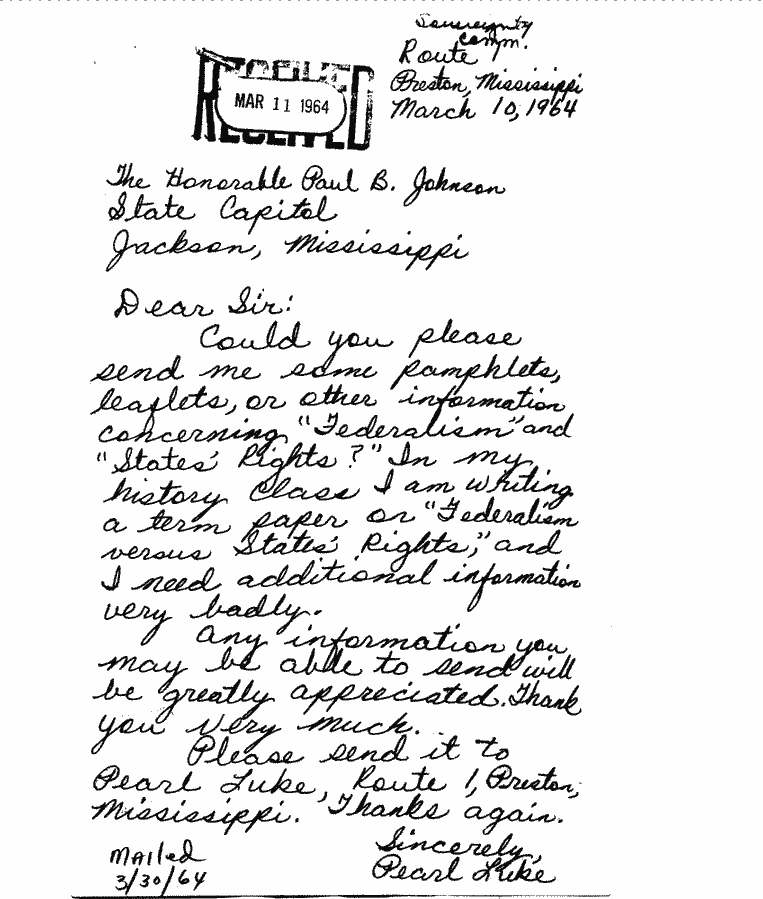 Sovereignty
Comm.
Route 1
Preston, Mississippi
March 10, 1964
RECEIVED
MAR 11 1964
RECEIVED
The Honorable Paul B. Johnson
State Capitol
Jackson, Mississippi
Dear Sir:
Could you please
send me some pamphlets,
leaflets, or other information
concerning "Federalism" and
"States' Rights?" In my
history class I am writing
a term paper on "Federalism
versus States' Rights," and
I need additional information
very badly.
Any information you
may be able to send will
be greatly appreciated. Thank
you very much.
Please send it to
Pearl Luke, Route 1, Preston,
Mississippi. Thanks again.
Sincerely,
Pearl Luke
Mailed
3/30/64